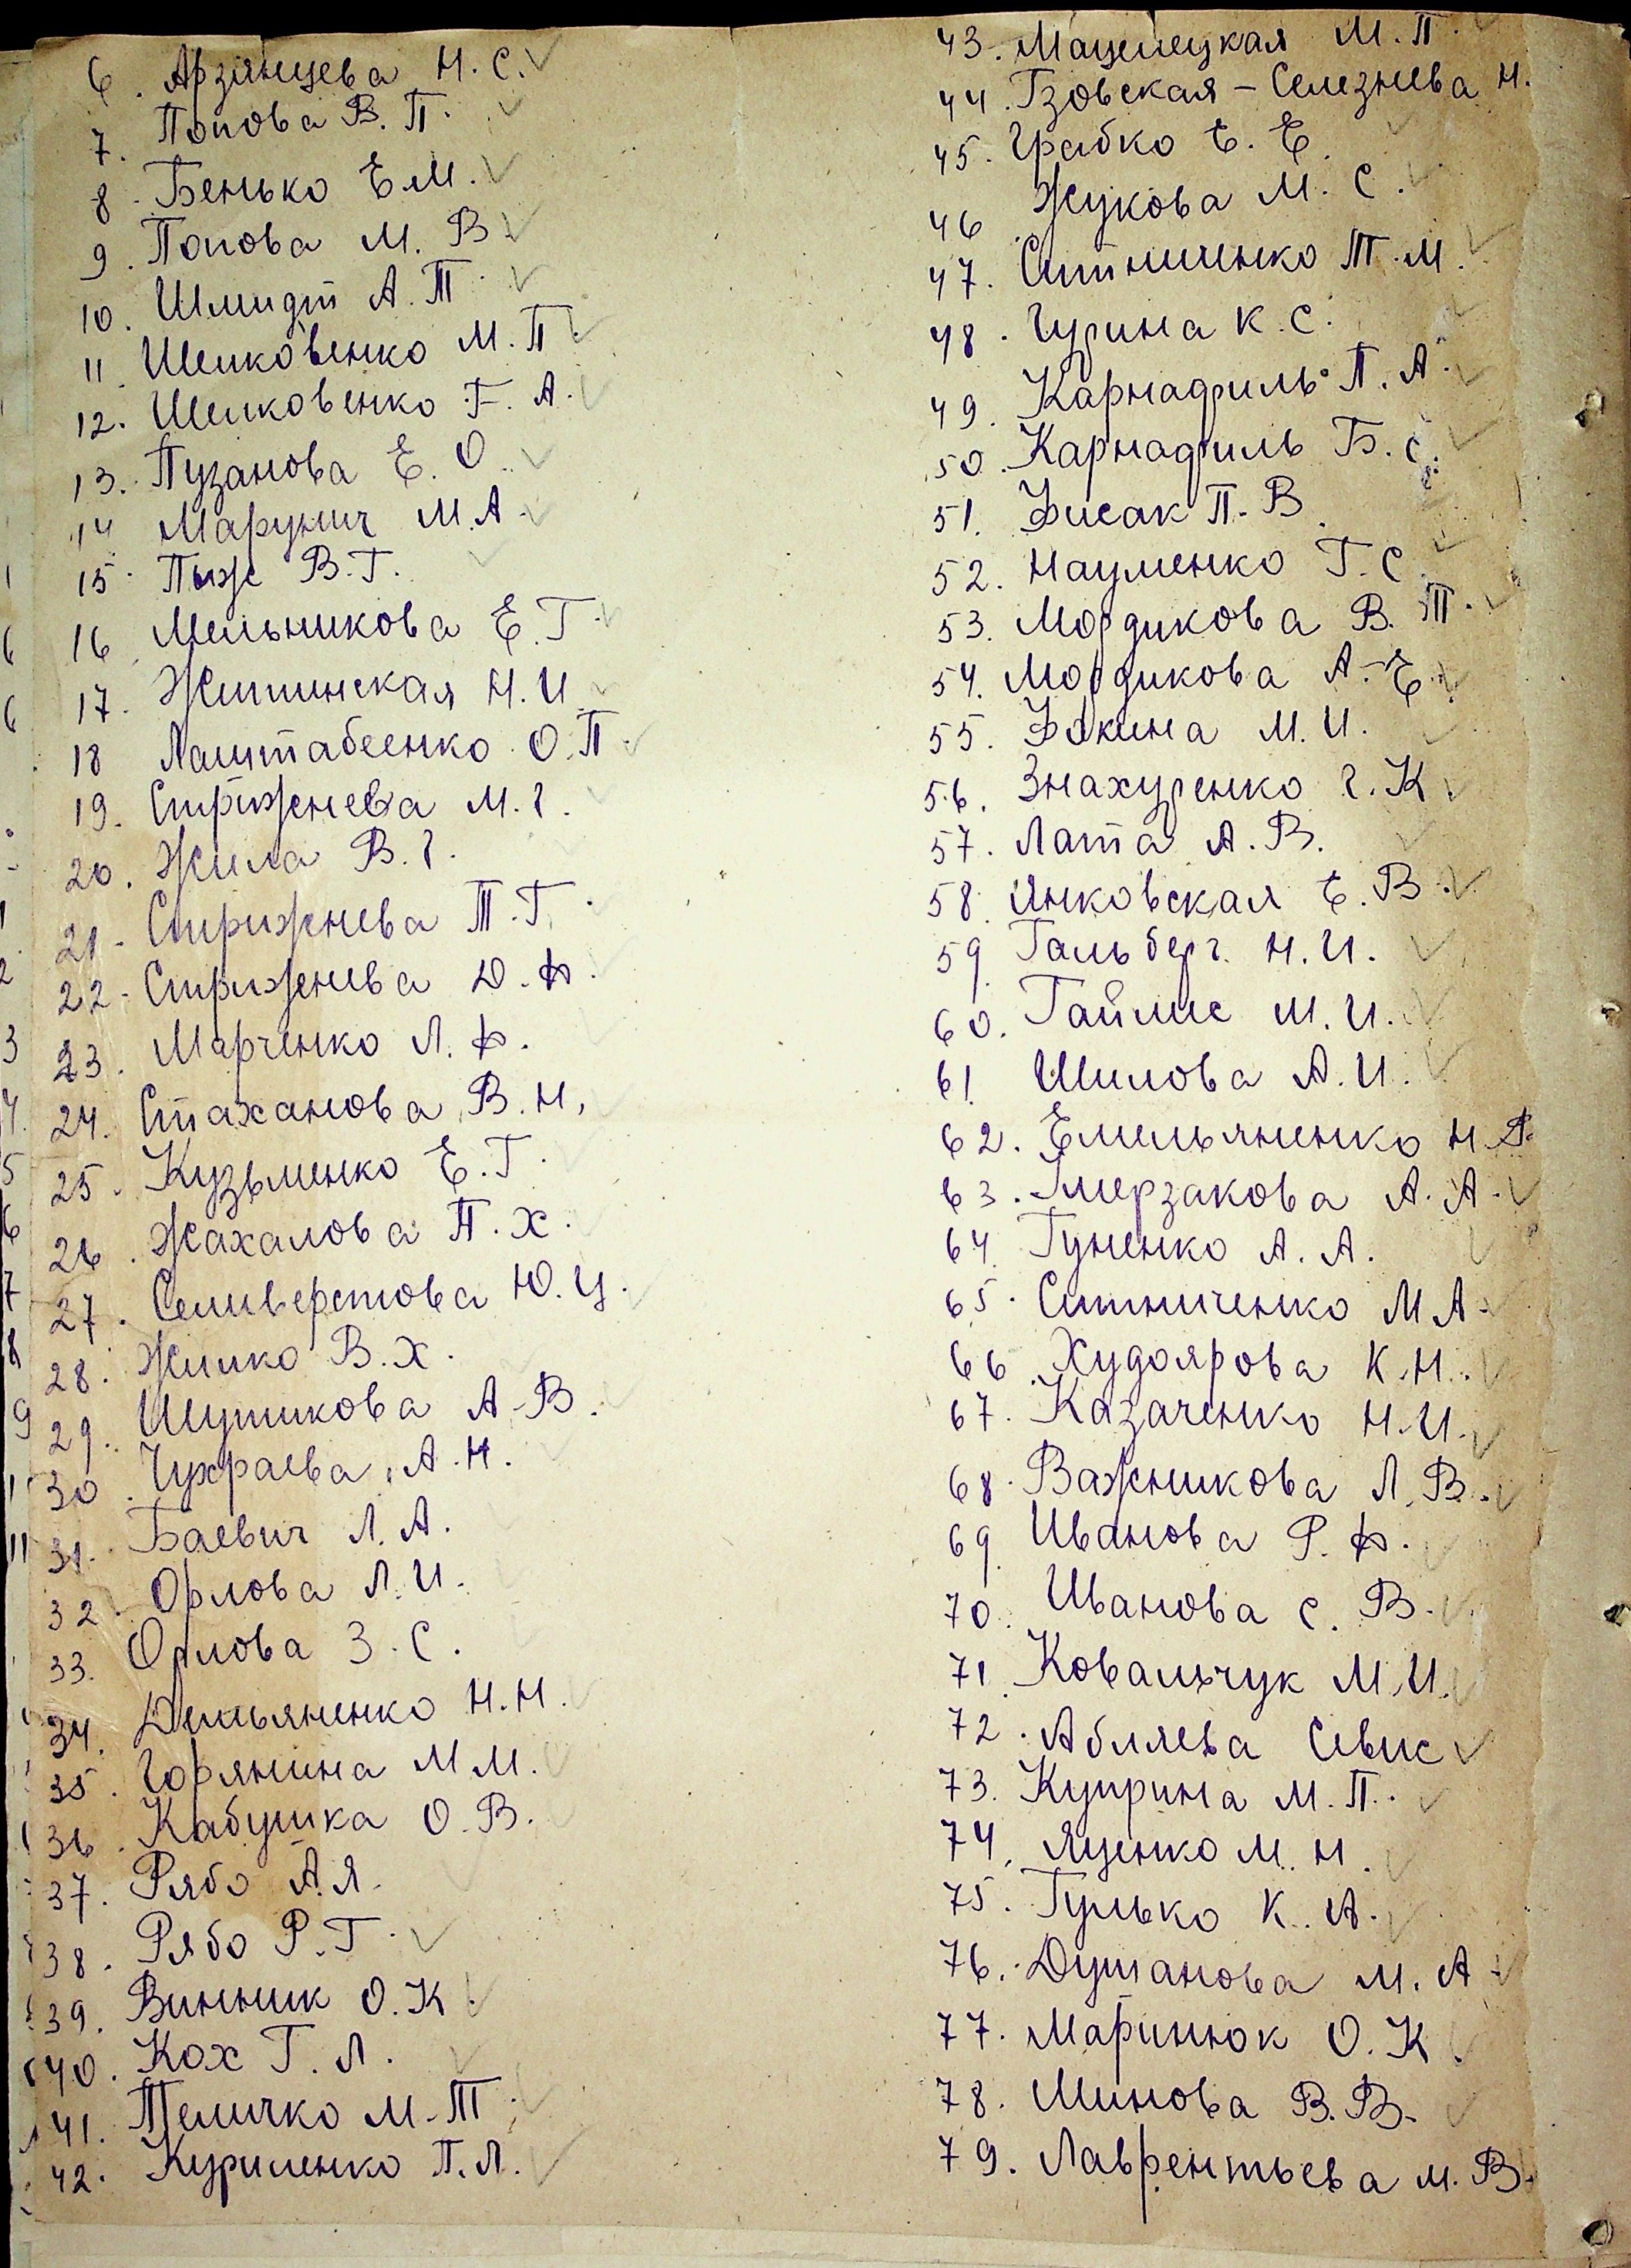 6. Арзянцева Н. С.
7. Попова В. П.
8. Бенько Е М.
9. Попова М. В.
10. Шмидт А. Т.
11. Шелковенко М. П.
12. Шелковенко Г. А.
13. Пузанова Е. О.
14 Марунич М. А.
15. Пыж В. Г.
16 Мельникова Е. Г.
17. Житинская Н. И.
18 Лаштабеенко О. П.
19. Стрижнева М. Г.
20. Жила В. Г.
21. Стрижнева Т. Г.
22. Стрижнева Д. Ф.
23. Марченко Л. Ф.
24. Стаханова В. Н.
25. Кузьменко Е. Г.
26. Жахалова П. Х.
27. Селиверстова Ю. Ц.
28. Жилко В. Х.
29. Шутикова А. В.
30. Чухраева А. Н.
31. Баевич Л. А.
32. Орлова Л. И.
33. Орлова З. С.
34. Демьяненко Н. Н.
35. Горянина М М.
36. Кабушка О. В.
37. Рябо А. Я.
38. Рябо Р. Г.
39. Винник О. К.
40. Кох Г. Л.
41. Теличко М. Т.
42. Куриленко П. Л.
43. Мацелецкая М. П.
44. Гзовская – Селезнева Н.
45. Грабко Е. Е.
46. Жукова М. С.
47. Ситниченко Т. М.
48. Гурина К. С.
49. Карнафиль П. А.
50. Карнафиль Б. С.
51. Фисак П. В.
52. Науменко Г. С.
53. Мордикова В. Т.
54. Мордикова А. Е.
55. Фокина М. И.
56. Знахуренко Г. К.
57. Лата А. В.
58. Янковская Е. В.
59. Гальберг. Н. И.
60. Гайлис М. И.
61 Шилова А. И.
62. Емельяненко Н.
63. Умерзакова А. А.
64. Гуненко А. А.
65. Ситниченко М А.
66. Худоярова К. Н.
67. Казаченко Н. И.
68. Важникова Л. В.
69. Иванова Р. Ф.
70. Иванова С. В.
71. Ковальчук М. И.
72. Абляева Севис
73. Куприна М. П.
74. Яценко М. Н.
75. Гулько К. А.
76. Душанова М. А.
77. Маринюк О. К.
78. Минова В. В.
79. Лаврентьева М. В.